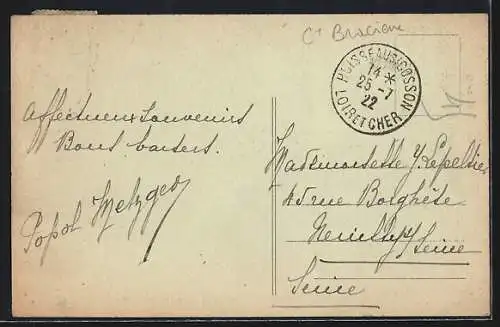 Ct Bracieux
HUISSEAU S/ COSSON
14 *
25 - 7
22
LOIR ET CHER
Affectueux souvenirs
Bons baisers.
Popol Metzger
Mademoiselle Y. Lepeltier
45 rue Borghèse
Neuilly s/ Seine
Seine